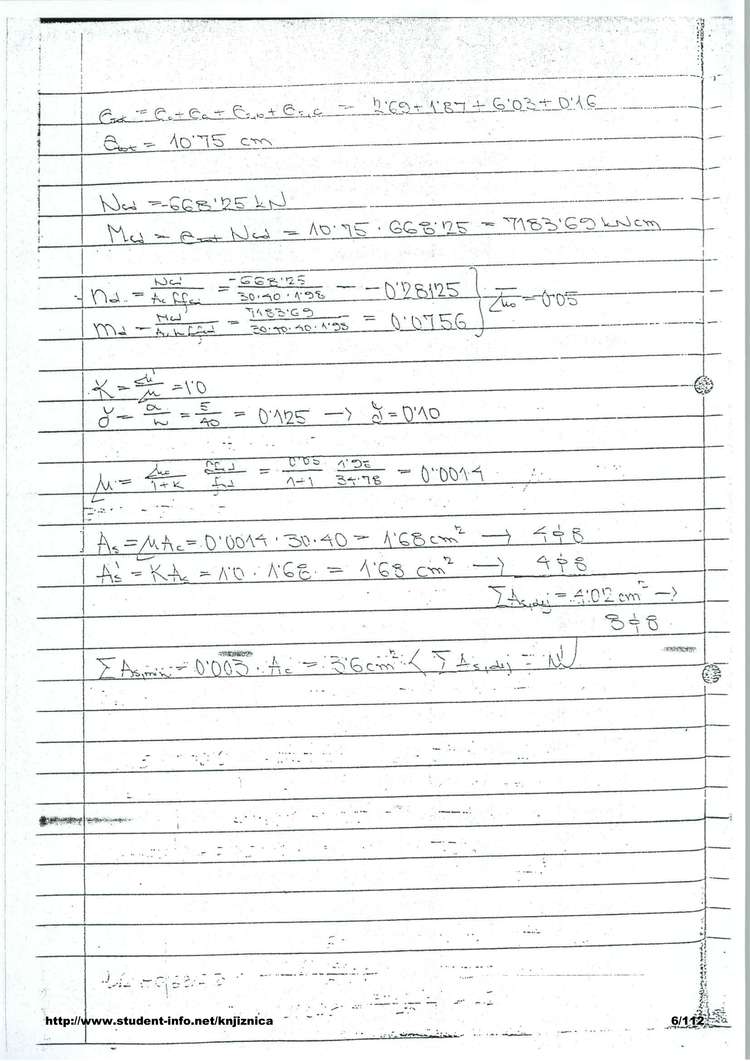 e_tot = e_0 + e_a + e_2,0 + e_2,G = 2'69 + 1'87 + 6'03 + 0'16
e_tot = 10'75 cm
N_cd = -668'25 kN
M_cd = e_tot N_cd = 10'75 · 668'25 = 7183'69 kNcm
n_d = N_cd / A_c f_cd = -668'25 / 30·40·1'98 = -0'28125
μ_0 = 0'05
m_d = M_cd / A_c h f_cd = 7183'69 / 30·40·40·1'98 = 0'0756
K = μ' / μ = 1'0
γ = a / h = 5 / 40 = 0'125 → γ = 0'10
μ = μ_0 / 1+K f_cd / f_yd = 0'05 / 1+1 1'98 / 34'78 = 0'0014
A_s = μ A_c = 0'0014 · 30 · 40 = 1'68 cm² → 4ϕ8
A_s' = K A_s = 1'0 · 1'68 = 1'68 cm² → 4ϕ8
Σ A_s,dej = 4'02 cm² →
8ϕ8
Σ A_s,min = 0'003 · A_c = 3'6 cm² < Σ A_s,dej =
http://www.student-info.net/knjiznica 6/112